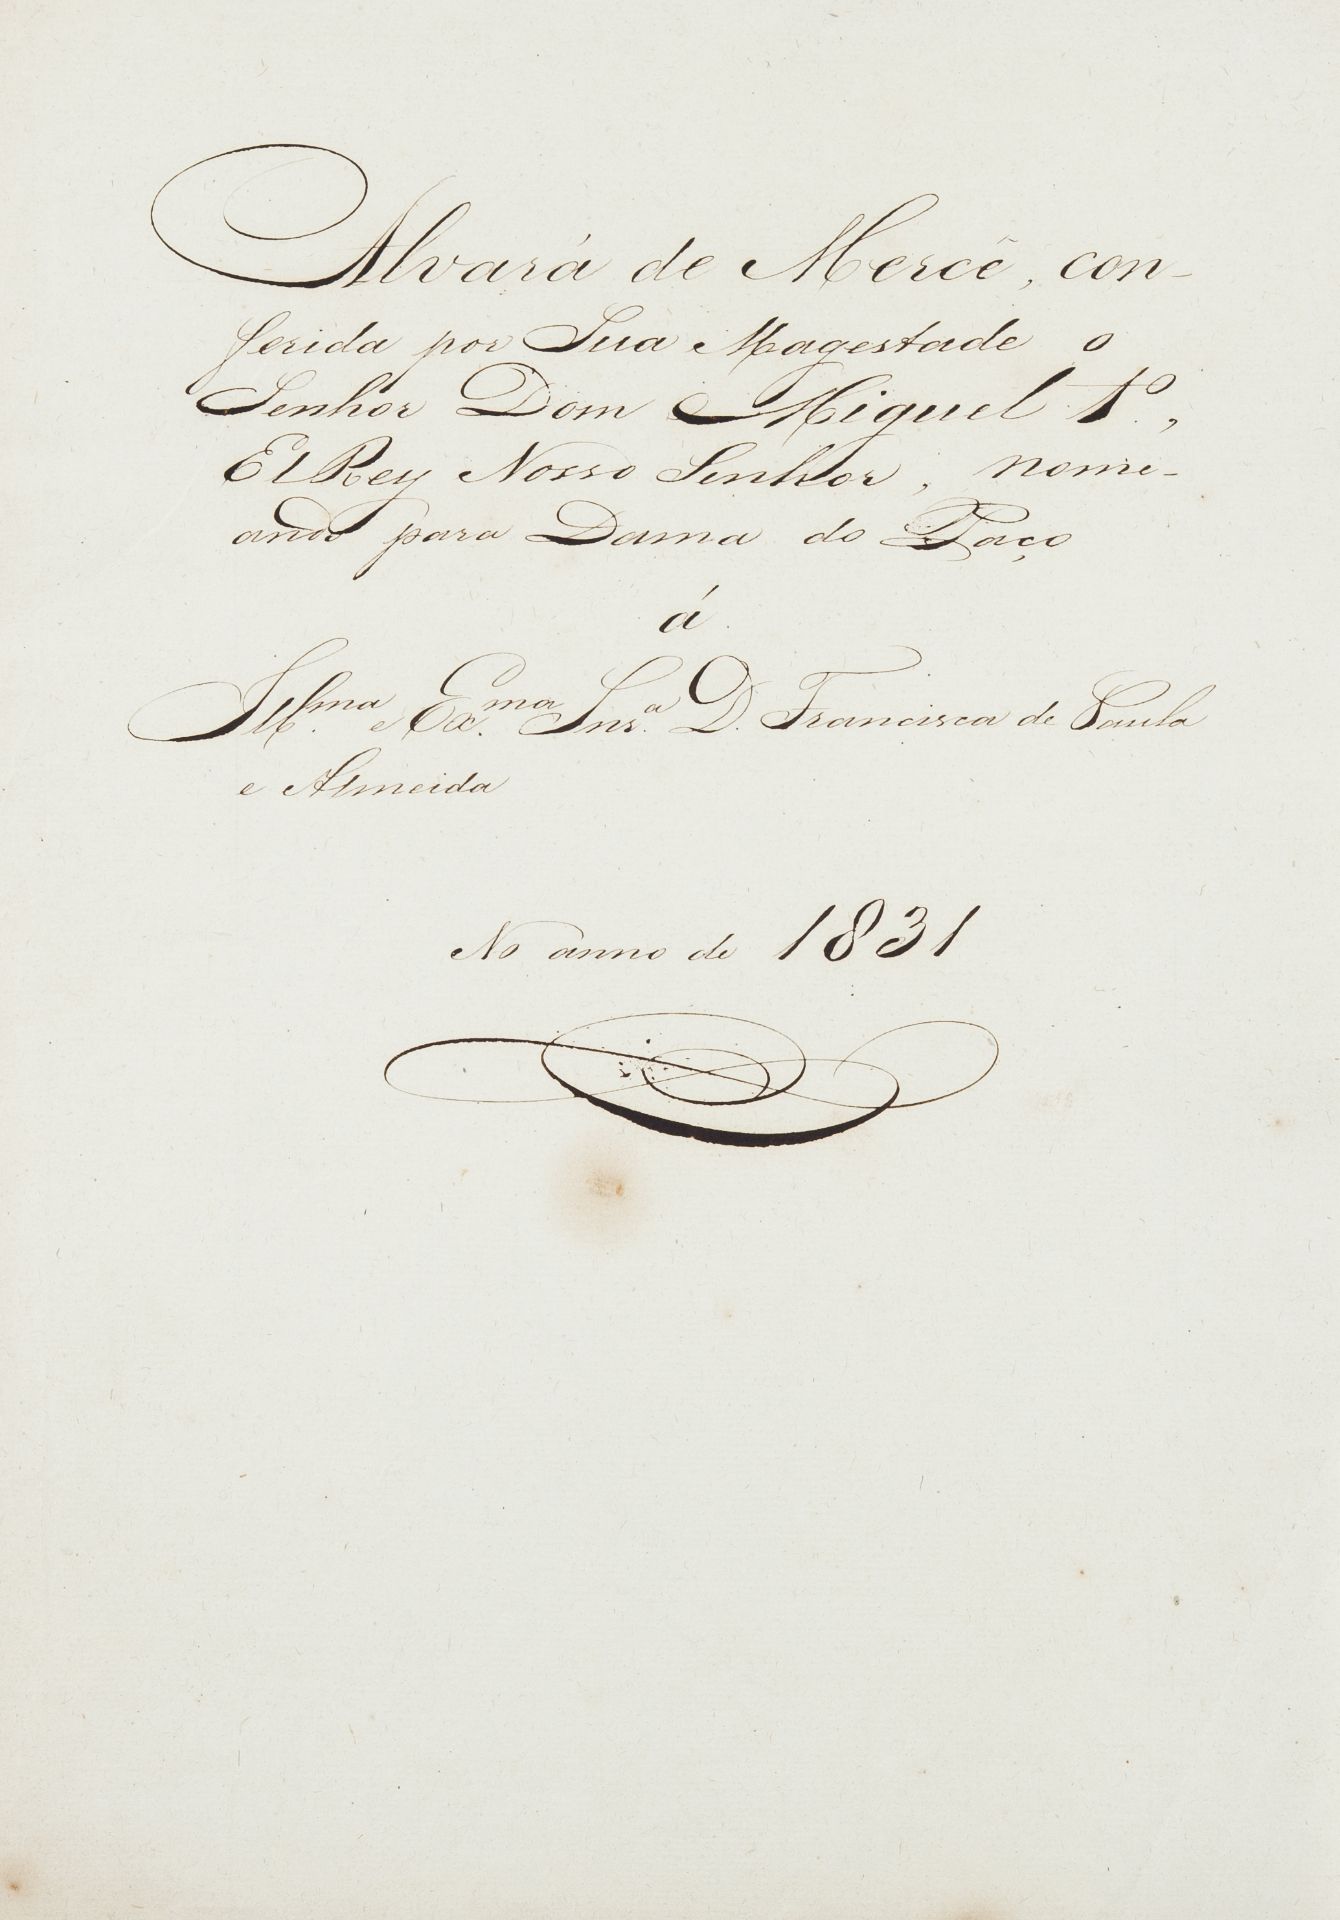 Alvará de Mercê, con-
ferida por Sua Magestade o
Senhor Dom Miguel 1º,
El Rey Nosso Senhor, nome-
ando para Dama do Paço
á
Illma e Exma Snra D. Francisca de Paula
e Almeida
No anno de 1831